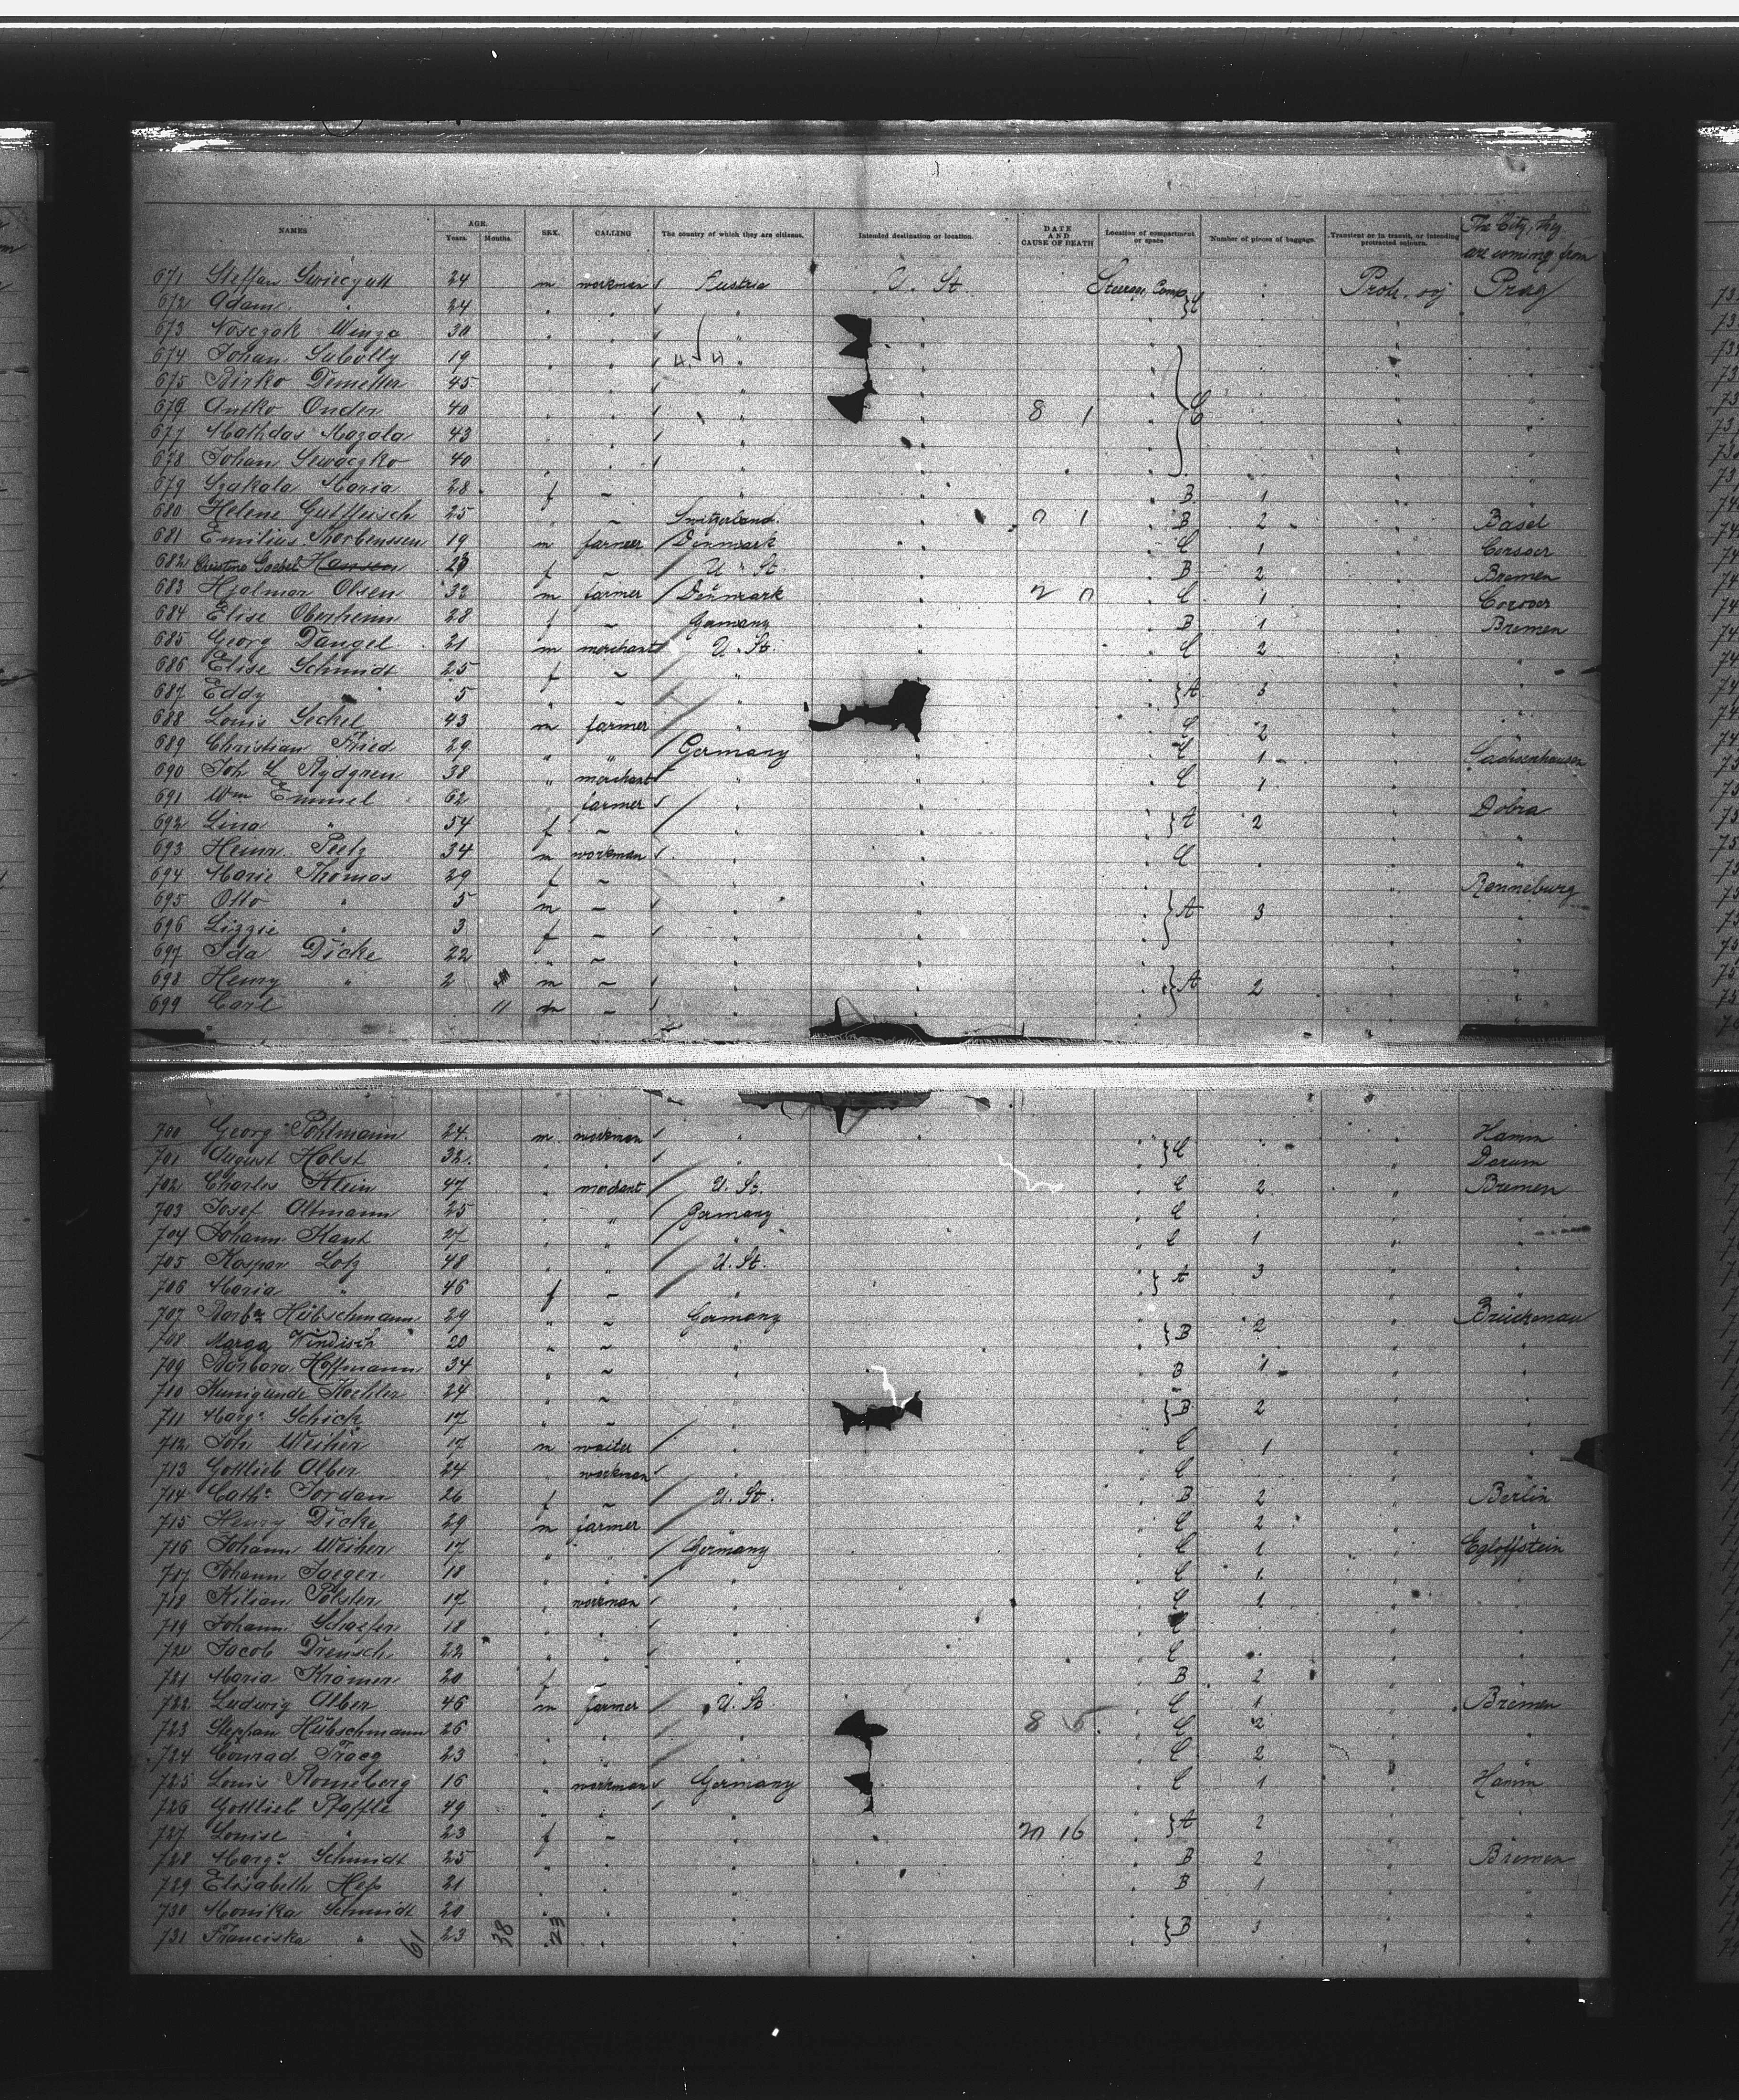 NAMES AGE. Years. Months. SEX. CALLING The country of which they are citizens. Intended destination or location. DATE AND CAUSE OF DEATH Location of compartment or space Number of pieces of baggage. Transient or in transit, or intending protracted sojourn. The City, they are coming from
671 Steffan 24 m workman Austria U. St. Steerage Comp. C " Protr. soj Prag
672 Adam " 24 " " " " " " " "
673 Winza 30 " " " " " " " "
674 Johan 19 " " " " " " " "
675 Birko Demetter 45 " " " " " " " "
676 Antko Onder 40 " " " " 8 1 " C " " "
677 Mathdas Mazala 43 " " " " " " " "
678 Johan 40 " " " " " " " "
679 Maria 28 f ~ " " " B 1 " "
680 Helene Gutfleisch 25 " ~ Switzerland " 1 " B 2 " Basel
681 Emilius Thorbenssen 19 m farmer Denmark " " C 1 " Corsoer
682 Christine Goebel Hansen 23 f ~ U. St. " " B 2 " Bremen
683 Hjalmar Olsen 32 m farmer Denmark " " C 1 " Corsoer
684 Elise Oberheim 28 f ~ Germany " " B 1 " Bremen
685 Georg Dangel 21 m merchant U. St. " " C 2 " "
686 Elise Schmidt 25 f ~ " " " " "
687 Eddy " 5 " ~ " " A 3 " "
688 Louis Seckel 43 m farmer " " " C 2 " "
689 Christian Fried 29 " " Germany " " C 1 " Sachsenhausen
690 Joh. L. Rydgren 38 " merchant " " " C 1 " "
691 Wm Emmel 62 farmer " " " " Dobra
692 Lina " 54 f ~ " " " A 2 " "
693 Heinr. Peetz 34 m workman " " " C " " "
694 Marie Thomas 29 f ~ " " " " Ronneburg
695 Otto " 5 m ~ " " " A 3 " "
696 Lizzie " 3 f ~ " " " " "
697 Ida Dicke 22 " ~ " " " " "
698 Henry " 2 m ~ " " " A 2 " "
699 Carl 11 m ~ " " " " "
700 Georg Pohlmann 24 m workman " " " " " Hamm
701 August Holst 32 " " " " C " " Dorum
702 Charles Klein 47 " merchant U. St. " C 2 " Bremen
703 Josef Altmann 25 " " Germany " C " " "
704 Johann Kant 27 " " " " C 1 " "
705 Kaspar Lotz 48 " " U. St. " 3 " "
706 Maria " 46 f ~ " " A " "
707 Barba Hübschmann 29 " ~ Germany " " Brückenau
708 Marga Windisch 20 " ~ " " B 2 " "
709 Barbara Hoffmann 34 " ~ " " B 1 " "
710 Kunigunde Koehler 24 " ~ " " " "
711 Marga Schick 17 " ~ " " B 2 " "
712 Joh. Weiher 17 m waiter " " C 1 " "
713 Gottlieb Alber 24 " workman " " C " "
714 Catha Jordan 26 f ~ U. St. " B 2 " Berlin
715 Henry Dicke 29 m farmer " " C 2 " "
716 Johann Weiher 17 " " Germany " C 1 " Egloffstein
717 Johann Jaeger 18 " " " " C 1 " "
718 Kilian Polster 17 " workman " " C 1 " "
719 Johann Schaefer 18 " " " " C " " "
720 Jacob Drensch 22 " " " " C " " "
721 Maria Krämer 20 f ~ " " B 2 " "
722 Ludwig Alber 46 m farmer U. St. " C 1 " Bremen
723 Stephan Hübschmann 26 " " " 8 5 " C 2 " "
724 Conrad Traeg 23 " " " " C 2 " "
725 Louis Romeberg 16 " workman Germany " C 1 " Hamm
726 Gottlieb Pfaffle 49 " " " " " "
727 Louise " 23 f ~ " 16 " A 2 " "
728 Marga Schmidt 25 " " " " B 2 " Bremen
729 Elisabeth Hess 21 " " " " B 1 " "
730 Monika Schmidt 20 " " " " " "
731 Franciska " 23 " " " " B 3 " "
61 38 23